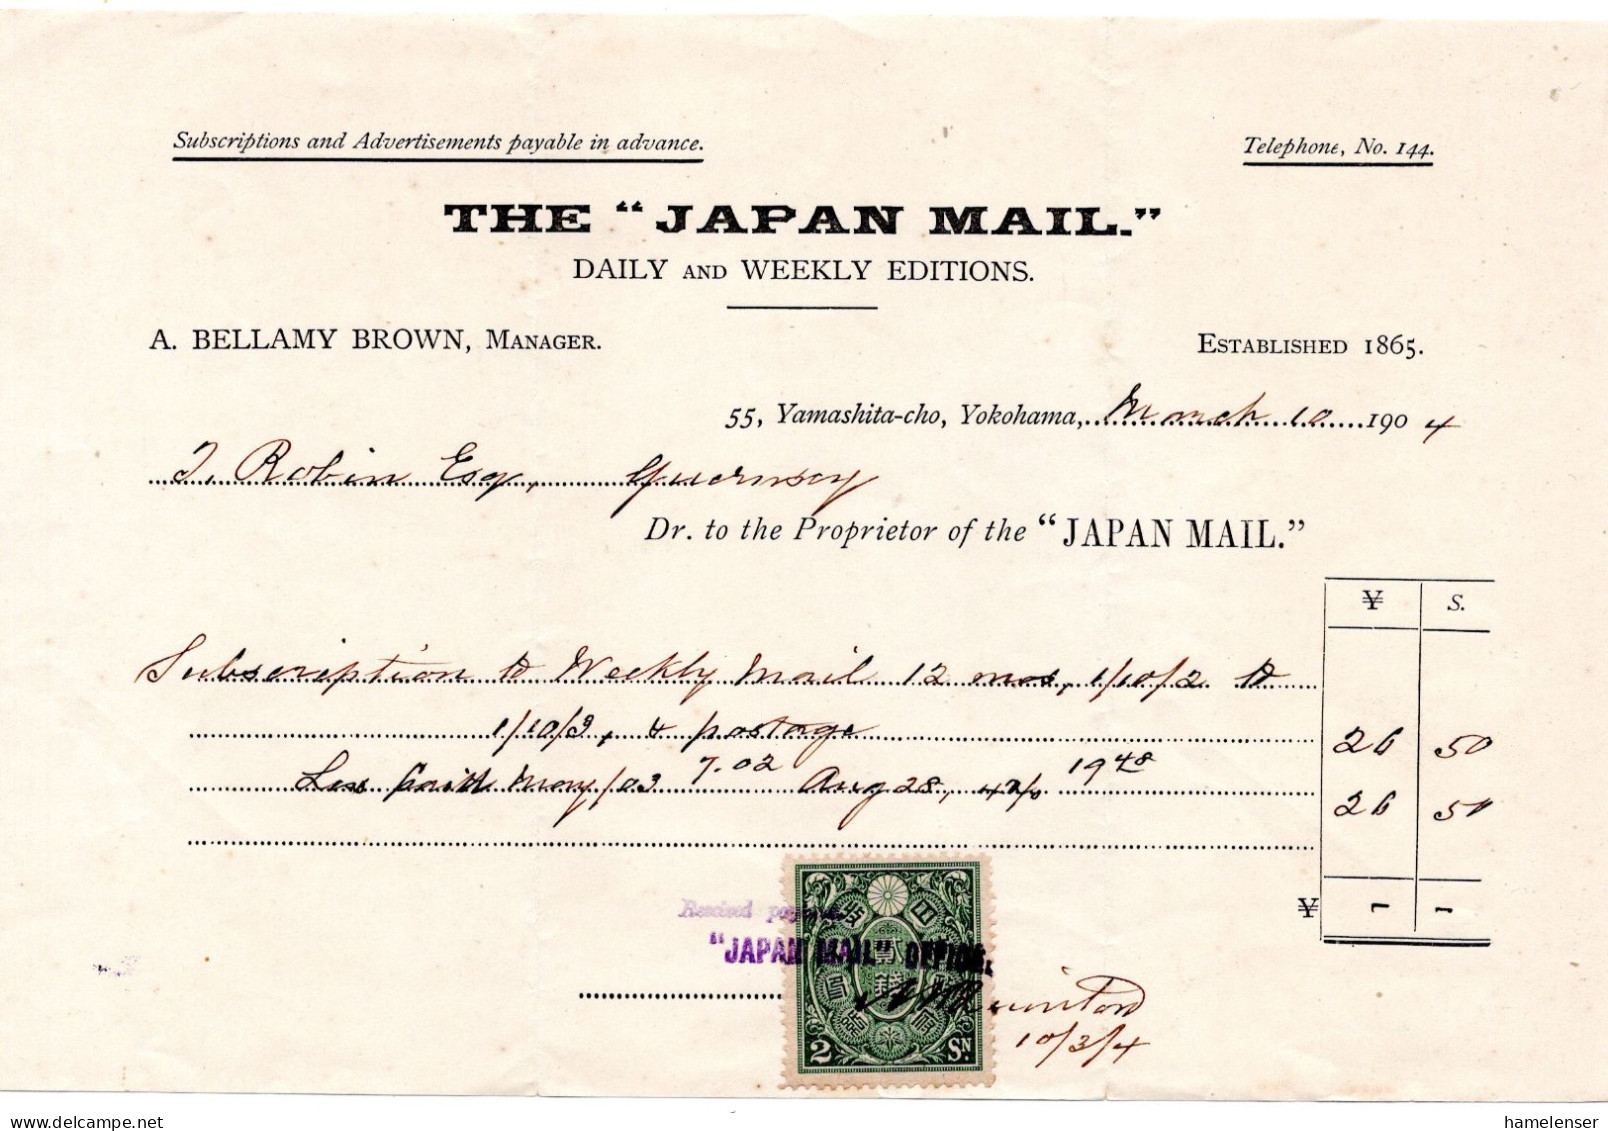 Subscriptions and Advertisements payable in advance. Telephone, No. 144.
THE “JAPAN MAIL.”
DAILY AND WEEKLY EDITIONS.
A. BELLAMY BROWN, MANAGER. ESTABLISHED 1865.
55, Yamashita-cho, Yokohama, March 10 1904
J. Robin Esq, Guernsey
Dr. to the Proprietor of the “JAPAN MAIL.”
¥ S.
Subscription to Weekly Mail 12 mos, 1/10/2 to
1/10/3, & postage 26 50
Less paid May/03 7.02 Aug 28, 19 48
26 50
¥ - -
Received payment
“JAPAN MAIL” OFFICE.
10/3/4
2 SN
hipstamp.com
hamelenser